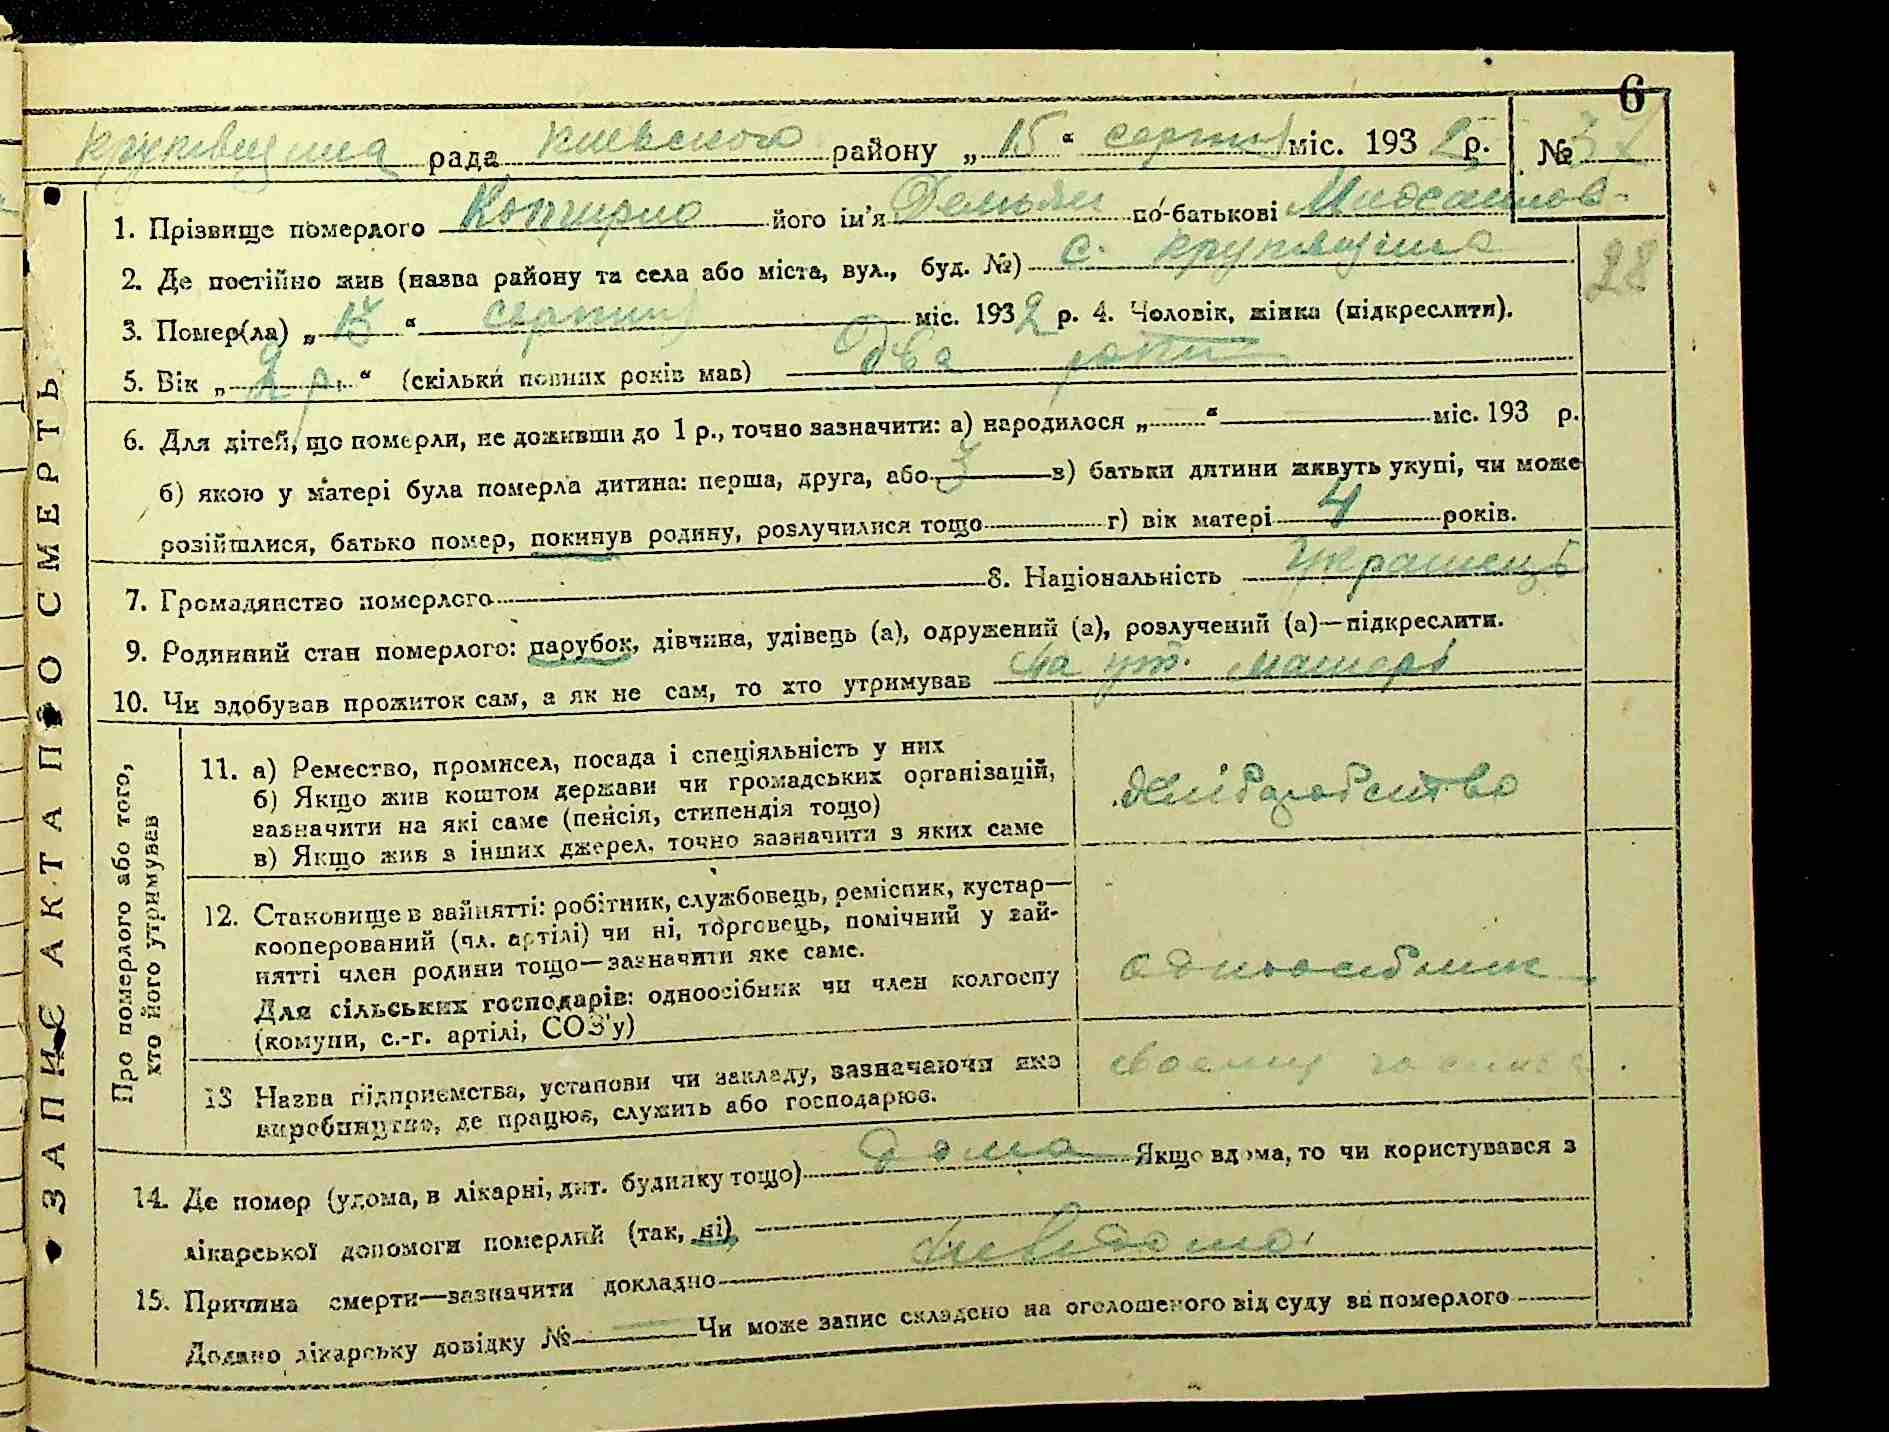 6
рада Киевского району „ 15 “ серпня міс. 1932 р. № 37
1. Прізвище померлого його ім'я Демьян по-батькові Михайлов-
2. Де постійно жив (назва району та села або міста, вул., буд. №) с.
28
3. Помер(ла) „ 15 “ серпня міс. 1932 р. 4. Чоловік, жінка (підкреслити).
5. Вік „ 2 р. “ (скільки повних років мав) Два роки
6. Для дітей, що померли, не доживши до 1 р., точно зазначити: а) народилося „ “ міс. 193 р.
б) якою у матері була померла дитина: перша, друга, або в) батьки дитини живуть укупі, чи може
розійшлися, батько помер, покинув родину, розлучилися тощо г) вік матері 4 років.
7. Громадянство померлого 8. Національність Украинець
9. Родинний стан померлого: парубок, дівчина, удівець (а), одружений (а), розлучений (а)—підкреслити.
10. Чи здобував прожиток сам, а як не сам, то хто утримував на ут. матері
ЗАПИС АКТА ПРО СМЕРТЬ
Про померлого або того,
хто його утримував
11. а) Ремество, промисел, посада і спеціяльність у них
б) Якщо жив коштом держави чи громадських організацій,
зазначити на які саме (пенсія, стипендія тощо)
в) Якщо жив з інших джерел, точно зазначити з яких саме
хліборобство
12. Становище в зайнятті: робітник, службовець, ремісник, кустар—
кооперований (чл. артілі) чи ні, торговець, помічний у зай-
нятті член родини тощо—зазначити яке саме.
Для сільських господарів: одноосібник чи член колгоспу
(комуни, с.-г. артілі, СОЗ'у)
одноосібник
13 Назва підприємства, установи чи закладу, зазначаючи яке
виробництво, де працює, служить або господарює.
своему
14. Де помер (удома, в лікарні, дит. будинку тощо) дома Якщо вдома, то чи користувався з
лікарської допомоги померлий (так, ні)
15. Причина смерти—зазначити докладно невідома
Додано лікарську довідку № Чи може запис складено на оголошеного від суду за померлого